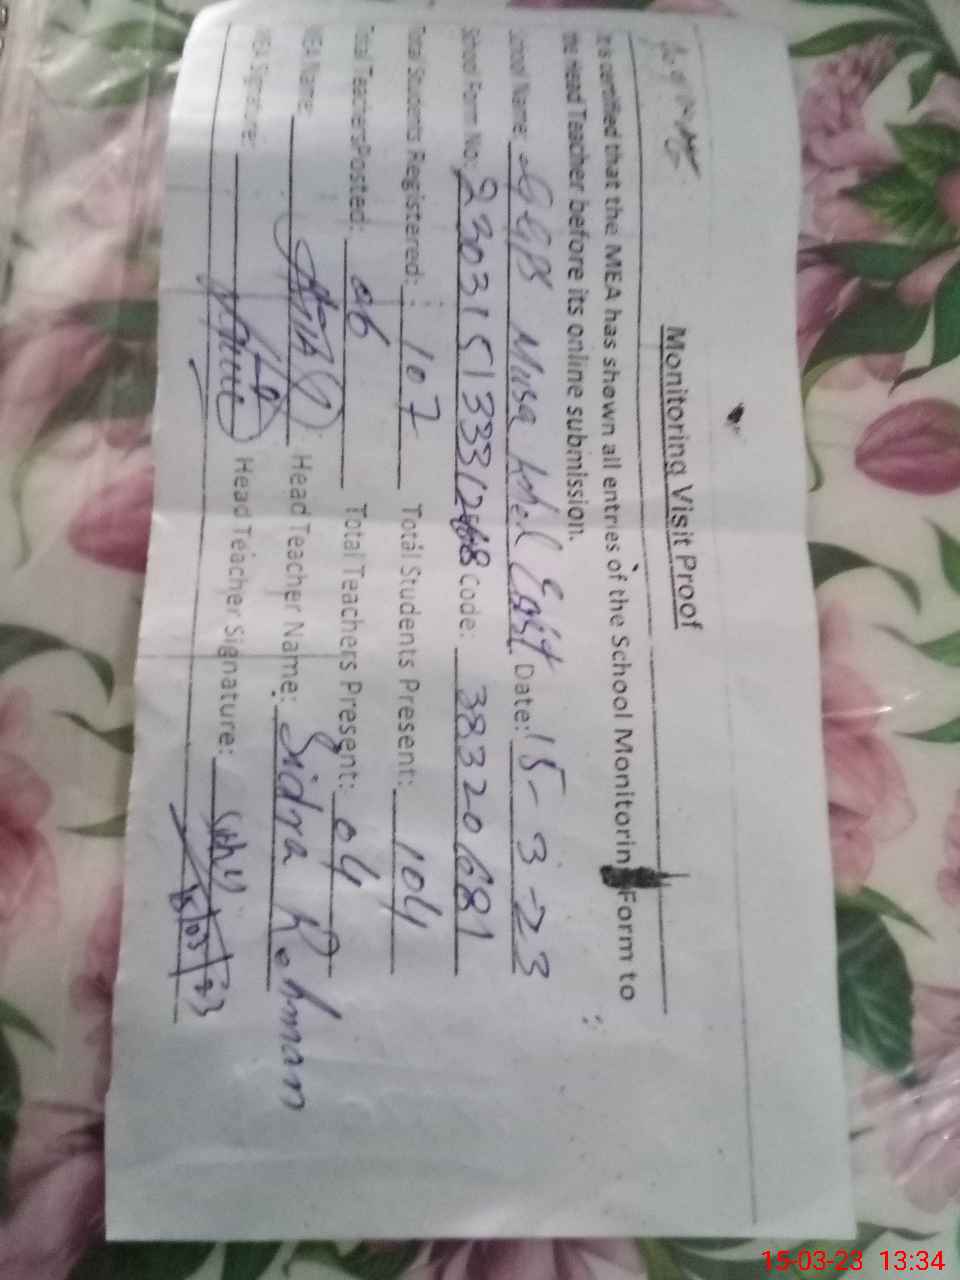 Monitoring Visit Proof
It is certified that the MEA has shown all entries of the School Monitorin Form to
the Head Teacher before its online submission.
School Name: GGPS Musa khel East Date: 15-3-23
School Form No: 230315133312468 Code: 38320681
Total Students Registered: 107 Total Students Present: 104
Total Teachers Posted: 06 Total Teachers Present: 04
MEA Name: Head Teacher Name: Sidra Rehman
MEA Signature: Head Teacher Signature:
15/03/23
15-03-23 13:34